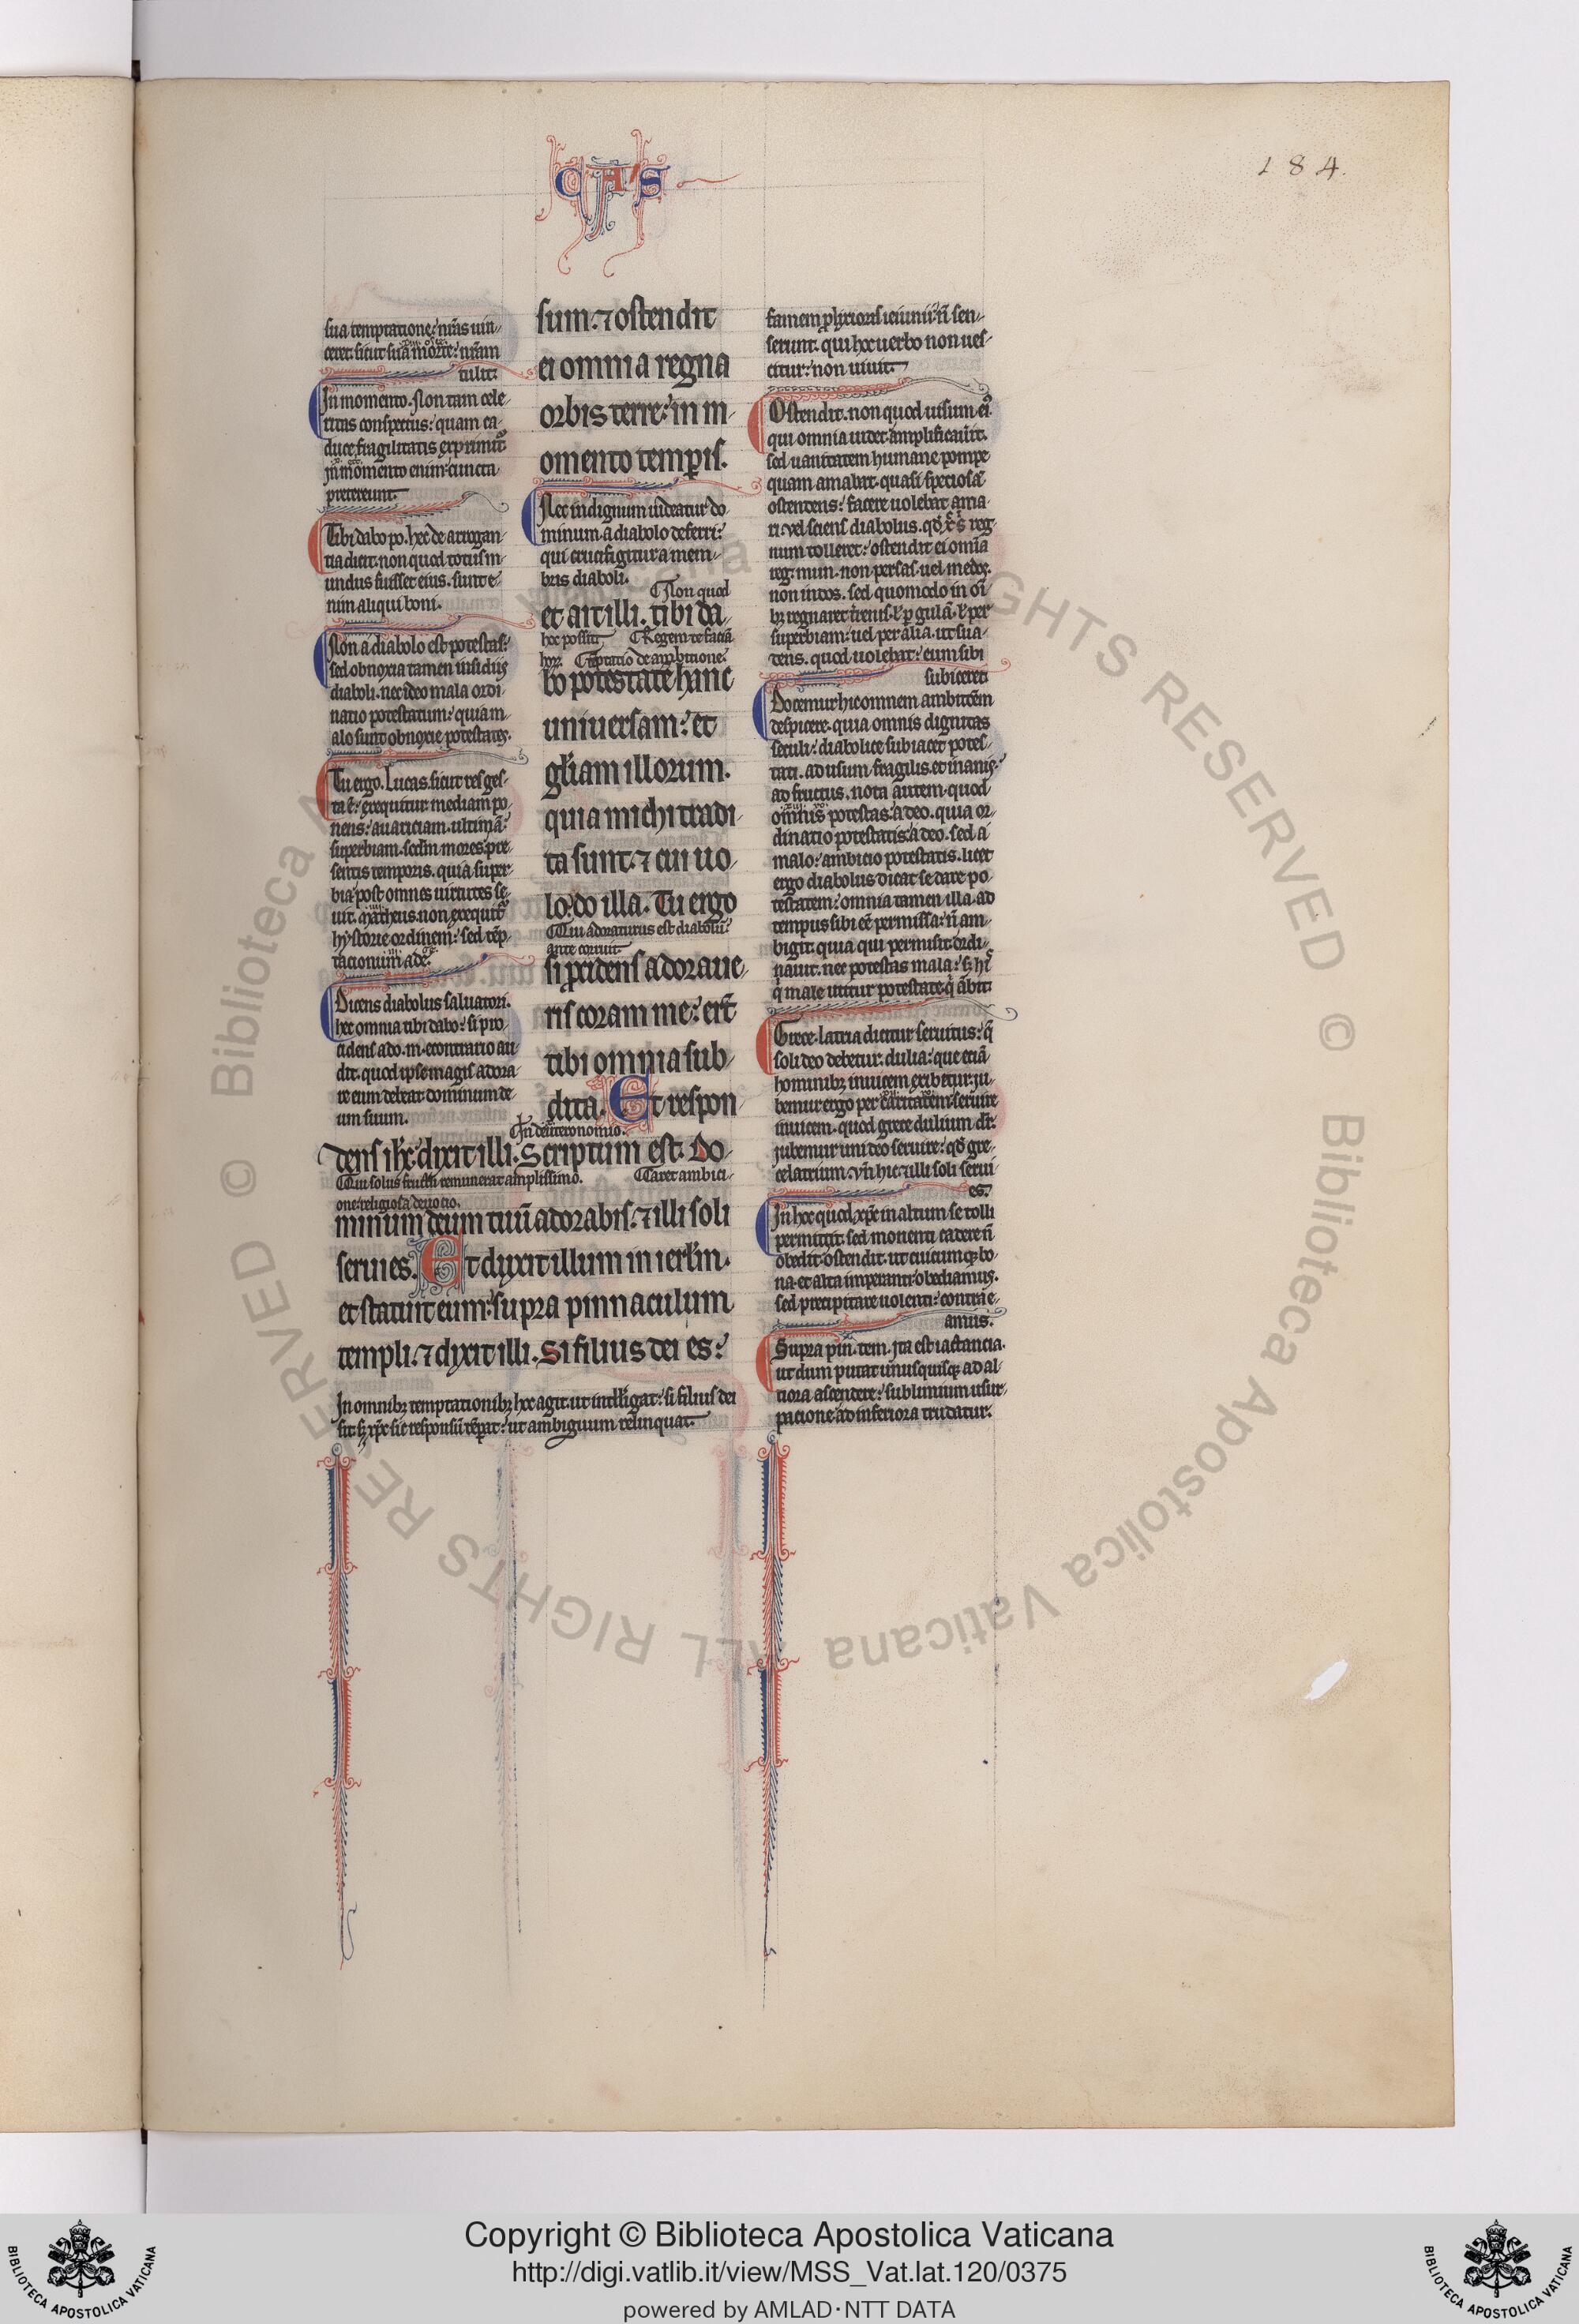 CAS
184.
sua temptatione: nr̃as uin-
ceret. sicut sua morte: nr̃am
tulit.
In momento. Non tam cele-
ritas conspectus: quam ca-
duce fragilitatis exprimit̃
in momento enim cuncta
pretereunt.
Tibi dabo po. hec de arrogan-
tia dicit. non quod totus m-
undus fuisset eius. sunt e-
nim aliqui boni.
Non a diabolo est potestas:
sed obnoxia tamen insidiis
diaboli. nec ideo mala ordi-
natio potestatum: quia m-
alo sunt obnoxie potestates.
Tu ergo. Lucas. sicut res ges-
ta ẽ: exequitur mediam po-
nens: auariciam. ultimã:
superbiam. scdm mores pre-
sentis temporis. quia super-
bia post omnes uirtutes se-
uit. Matheus. non exequit̃
hystorie ordinem: sed tẽp-
tacionum ade.
Dicens diabolus saluatori.
hec omnia tibi dabo: si pro-
cidens ado. m. econtrario au-
dit. quod ipse magis adora-
re eum debeat dominum de-
um suum.
sum. ⁊ ostendit
ei omnia regna
orbis terre: in m-
omento temꝑis.
Nec indignum uideatur do-
minum a diabolo deferri:
qui crucifigitur a mem-
bris diaboli.
Non quod
et ait illi. tibi da-
hoc possit. Regem te faciã
hoꝝ. Tẽptatio de ambitione.
bo potestatẽ hanc
uniuersam: et
gl̃iam illorum.
quia michi tradi-
ta sunt. ⁊ cui uo-
lo: do illa. Tu ergo
Qui adoraturus est diabolũ:
ante corruit.
si ꝓcidens adoraue-
ris coram me: er̃t
tibi omnia sub-
dita. Et respon-
In deuteronomio.
dens ihc̃: dixit illi. Scriptum est. Do-
Qui solus seruũ remunerat amplissimo. Caret ambici-
one: religiosa deuocio.
minum deum tuũ adorabis. ⁊ illi soli
seruies. Et dyxit illum in ierl̃m.
et statuit eum: supra pinnaculum
templi. ⁊ dyxit illi. Si filius dei es:
In omnibꝫ temptationibꝫ hec agit. ut intelligat: si filius dei
sit. ſꝫ xp̃c sic responsũ tẽperat: ut ambiguum relinquat.
famem prolixioris ieiunii: ñ sen-
serunt. qui hoc uerbo non ues-
citur: non uiuit.
Ostendit. non quod uisum ei⁹
qui omnia uidet amplificauit.
sed uanitatem humane pompe
quam amabat. quasi speciosã
ostendens: facere uolebat ama-
ri. vel sciens diabolus. qd̃ xp̃s reg-
num tolleret: ostendit ei omĩa
reg. mun. non persas. uel medos.
non indos. sed quomodo in oĩ-
bꝫ regnaret
superbiam: uel per alia. ut sua-
dens. quod uolebat: eum sibi
subiceret.
Docemur hic omnem ambitiõem
despicere. quia omnis dignitas
seculi: diabolice subiacet potes-
tati. ad usum fragilis. et inanis:
ad fructus. nota autem. quod
omnis potestas: a deo. quia or-
dinatio potestatis: a deo. sed a
malo: ambicio potestatis. licet
ergo diabolus dicat se dare po-
testatem: omnia tamen illa. ad
tempus sibi eẽ permissa: ñ am-
bigit. quia qui permisit: ordi-
nauit. nec potestas mala: ſꝫ hi⁹
q̃ male utitur potestate q̃ ãbit.
Grece. latria dicitur seruitus: q̃
soli deo debetur. dulia: que etiã
hominibꝫ inuicem exibetur. ju-
bemur ergo per caritatem seruire
inuicem. quod grece dulium dr̃.
jubemur uni deo seruire: qd̃ gre-
ce latrium. vñ hic: illi soli serui-
es.
In hoc quod xp̃c in altum se tolli
permittit. sed monenti cadere ñ
obedit: ostendit. ut cuicumqꝫ bo-
na et alta imperanti: obediamus.
sed precipitare uolenti: contrae-
amus.
Supra pin. tem. Ita est iactancia.
ut dum putat unusquisqꝫ ad al-
tiora ascendere: sublimium usur-
pacione: ad inferiora trudatur.
Copyright © Biblioteca Apostolica Vaticana
http://digi.vatlib.it/view/MSS_Vat.lat.120/0375
powered by AMLAD·NTT DATA